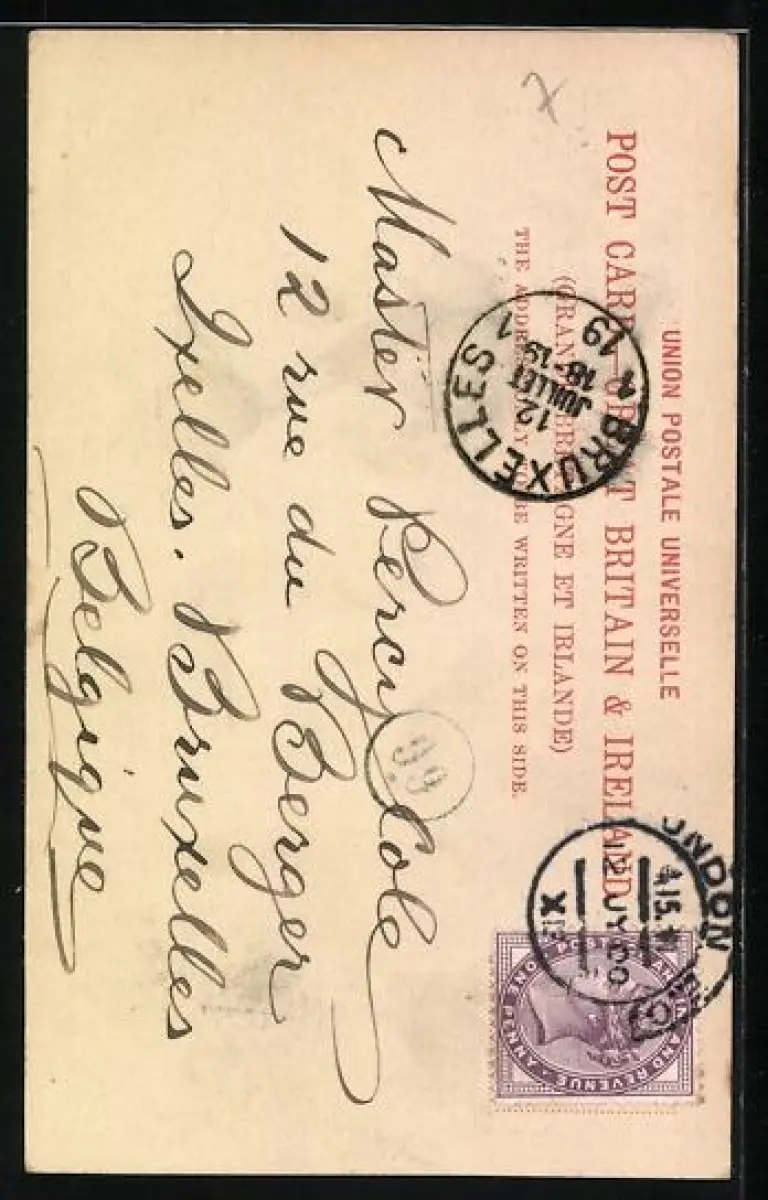 UNION POSTALE UNIVERSELLE
POST CARD—GREAT BRITAIN & IRELAND
(GRANDE BRETAGNE ET IRLANDE)
THE ADDRESS ONLY TO BE WRITTEN ON THIS SIDE.
BRUXELLES 1
12
JUILLET
18-19
LONDON
4.15
12 JY 00
X
POSTAGE AND INLAND REVENUE · ONE PENNY
99
Master Percy Cole
12 rue du Berger
Ixelles. Bruxelles
Belgique